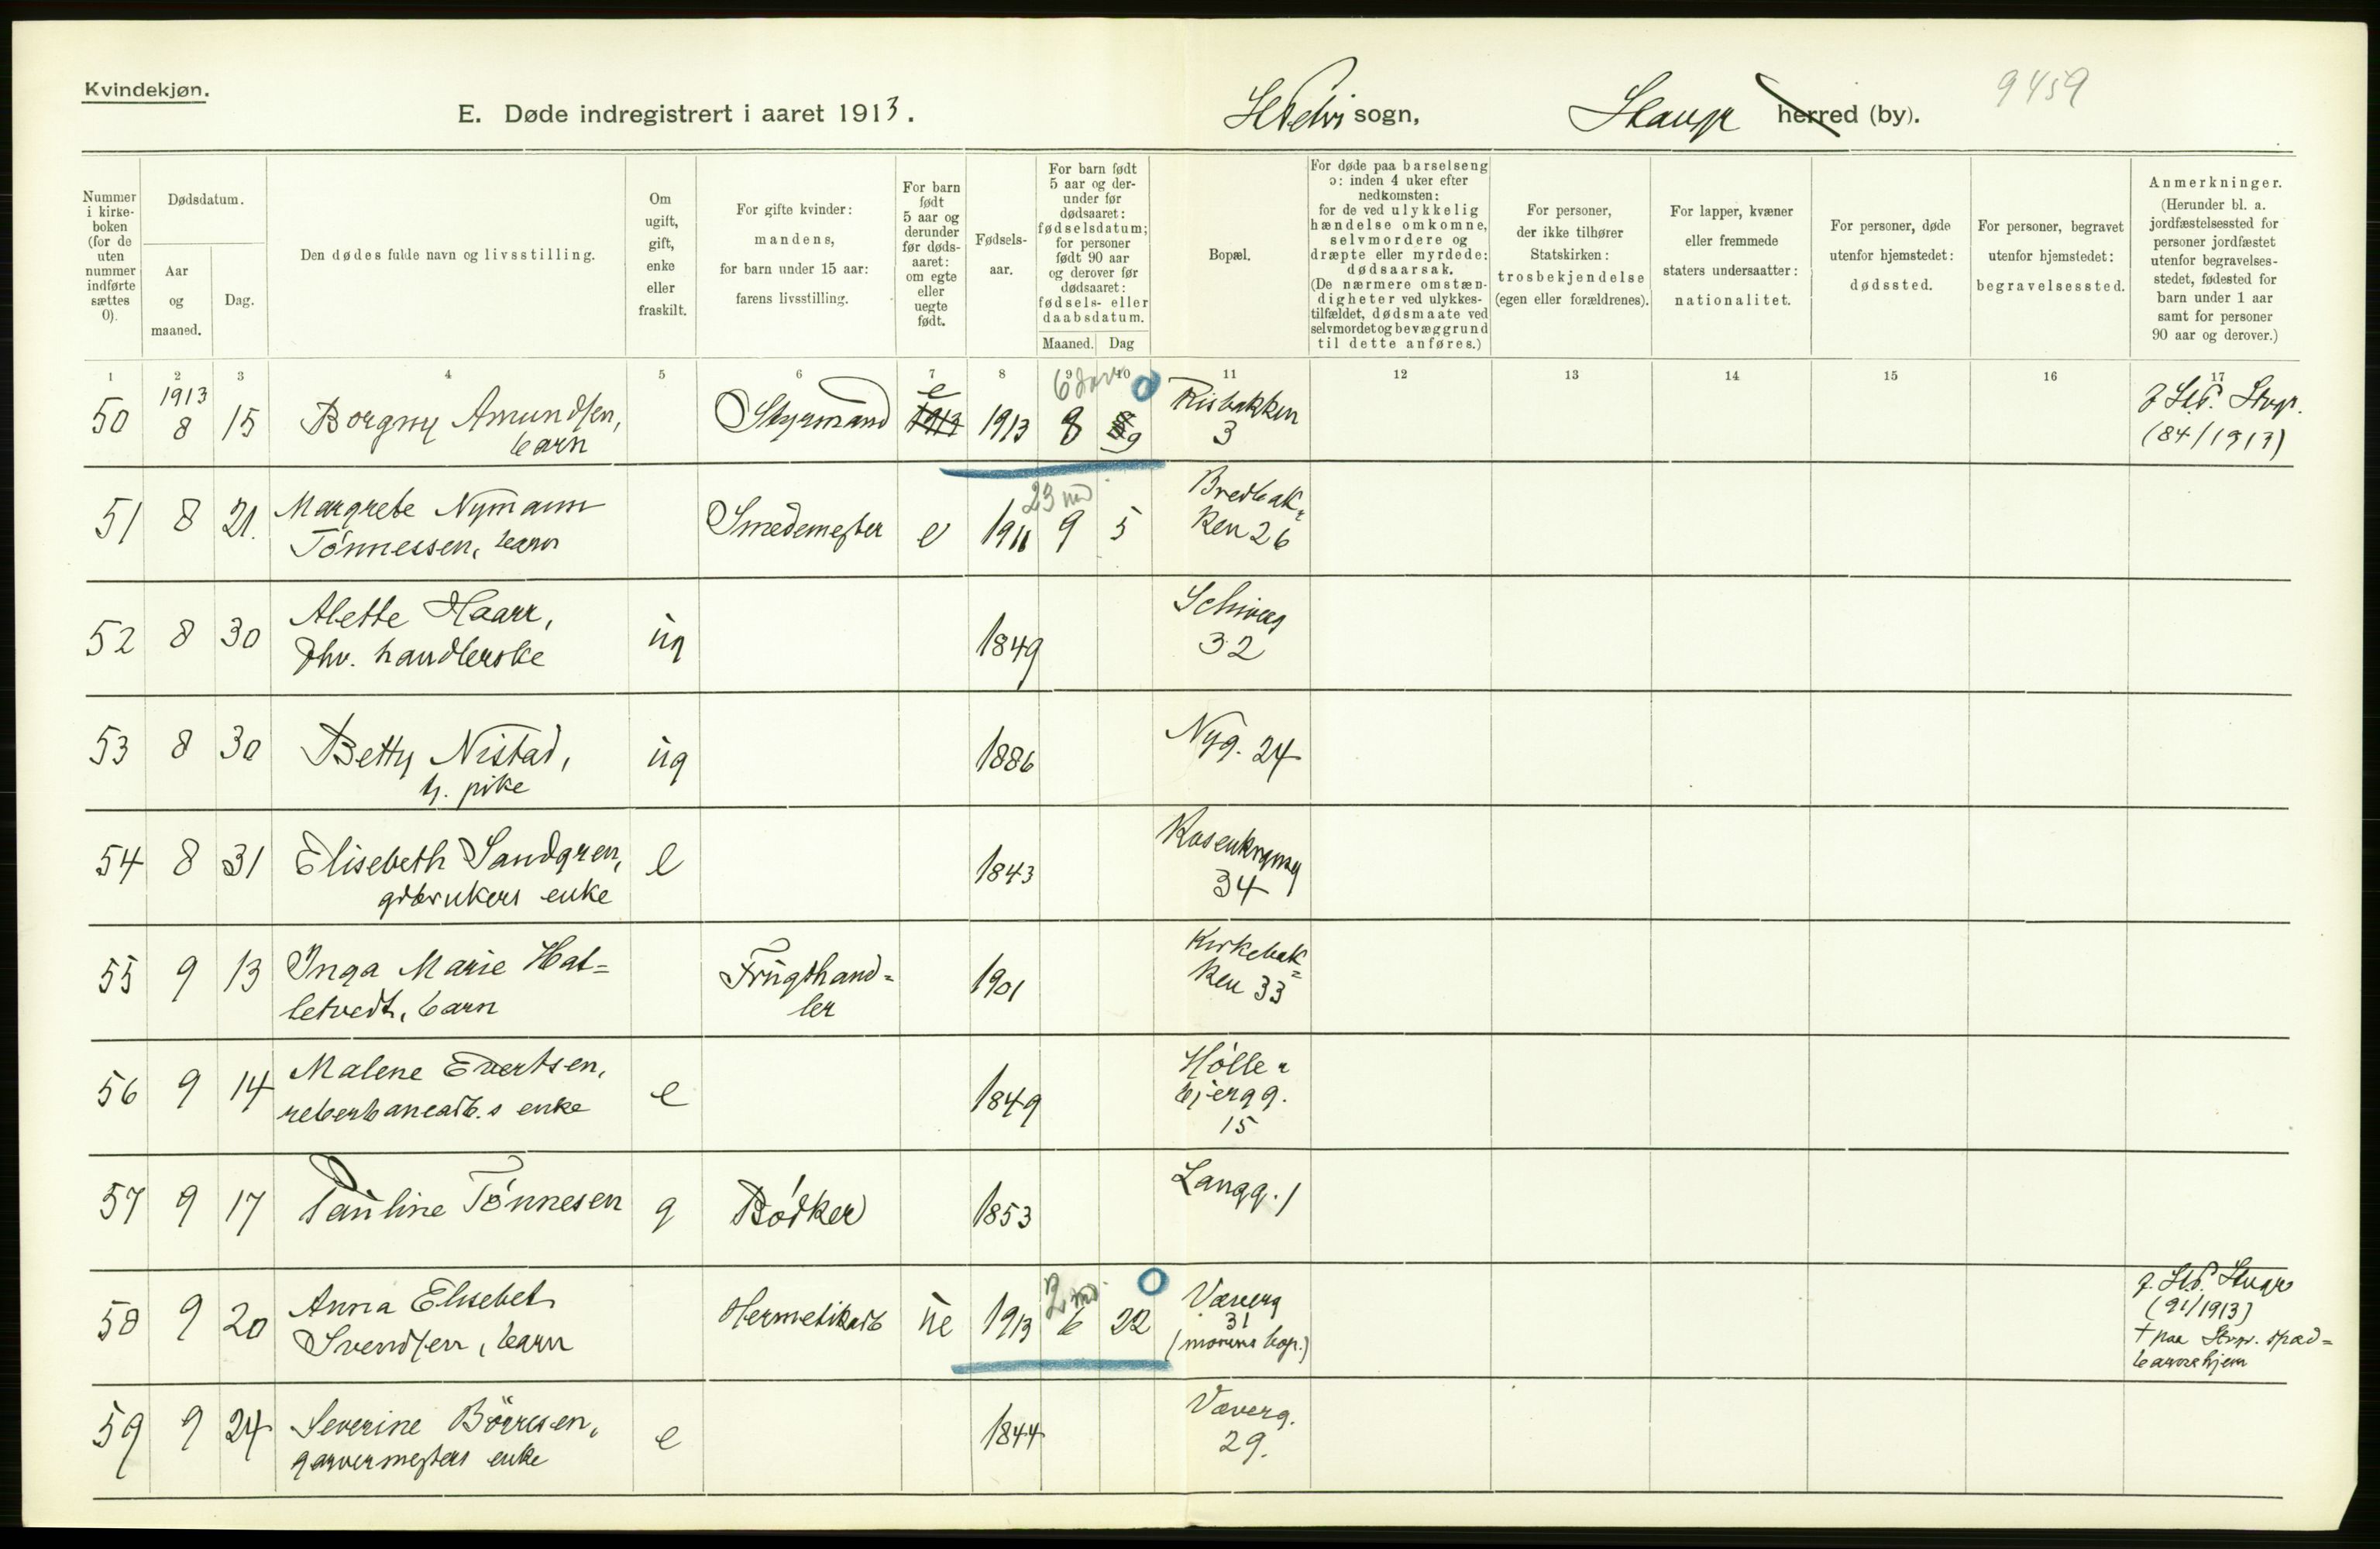 Kvindekjøn.
E. Døde indregistrert i aaret 1913.
sogn,
herred (by).
9459
Nummer i kirkeboken (for de uten nummer indførte sættes 0).
Dødsdatum.
Aar og maaned.
Dag.
Den dødes fulde navn og livsstilling.
Om ugift, gift, enke eller fraskilt.
For gifte kvinder: mandens, for barn under 15 aar: farens livsstilling.
For barn født 5 aar og derunder før dødsaaret: om egte eller uegte født.
Fødselsaar.
For barn født 5 aar og derunder før dødsaaret: fødselsdatum; for personer født 90 aar og derover før dødsaaret: fødsels- eller daabsdatum.
Maaned. Dag
Bopæl.
For døde paa barselseng ɔ: inden 4 uker efter nedkomsten: for de ved ulykkelig hændelse omkomne, selvmordere og dræpte eller myrdede: dødsaarsak. (De nærmere omstændigheter ved ulykkestilfældet, dødsmaate ved selvmordet og bevæggrund til dette anføres.)
For personer, der ikke tilhører Statskirken: trosbekjendelse (egen eller forældrenes).
For lapper, kvæner eller fremmede staters undersaatter: nationalitet.
For personer, døde utenfor hjemstedet: dødssted.
For personer, begravet utenfor hjemstedet: begravelsessted.
Anmerkninger. (Herunder bl. a. jordfæstelsessted for personer jordfæstet utenfor begravelsesstedet, fødested for barn under 1 aar samt for personer 90 aar og derover.)
1 2 3 4 5 6 7 8 9 10 11 12 13 14 15 16 17
1913
50 8 15 Borgny Amundsen, barn Styrmand e 1913 8 9 Risbakken 3 f. St. P. Stvgr. (84/1913)
51 8 21. Margrete Nymann Tönnessen, barn Smedemester e 1911 23 md 9 5 Bredbakken 26
52 8 30 Alette Haarr, fhv. handlerske ug 1849 32
53 8 30 Betty Nistad, h. pike ug 1886 Nyg. 24
54 8 31 Elisebeth Sandgren, gdbrukers enke e 1843 34
55 9 13 Inga Marie Hatletvedt, barn Frugthandler 1901 Kirkebakken 33
56 9 14 Malene Evertsen, reberbanearb.s enke e 1849 Höllebjergg. 15
57 9 17 Pauline Tönnesen g Bödker 1853 Langg. 1
58 9 20 Anna Elisebet Svendsen, barn Hermetikarb ue 1913 2 md 6 22 Væverg 31 (morens bop.) f. St. P. Stvgr (91/1913) † paa Stvgr. spædbarnehjem
59 9 24 Severine Börresen, garvermesters enke e 1844 Væverg. 29.